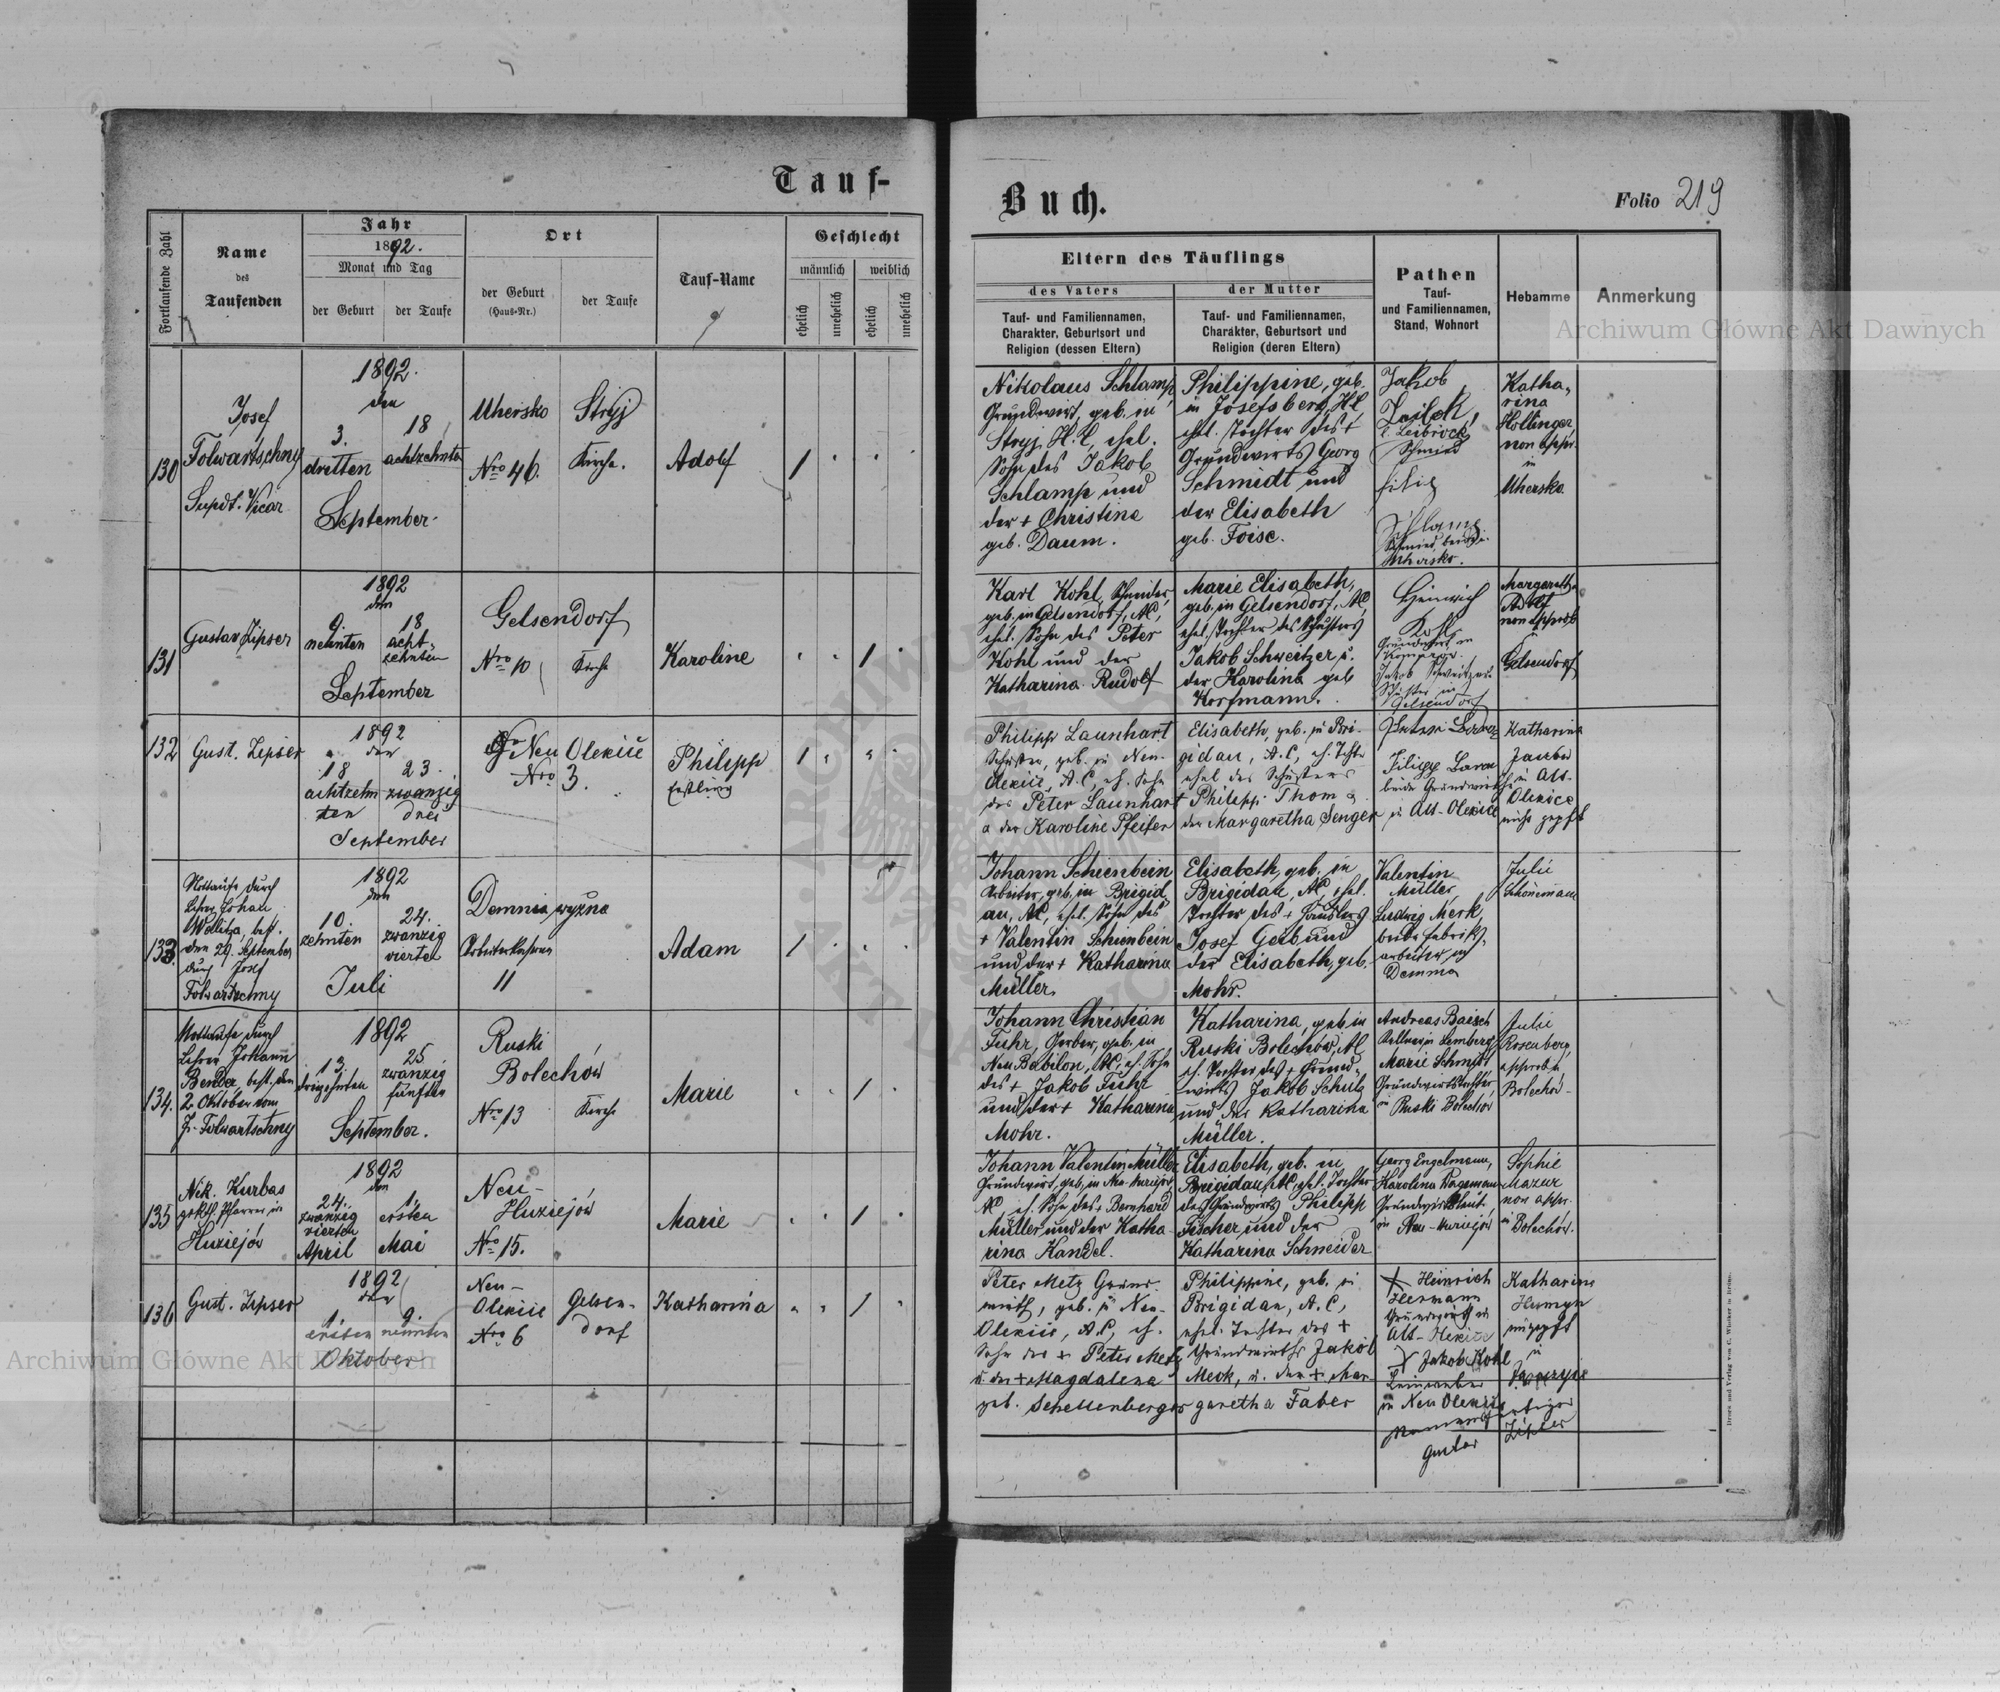 Tauf-
Buch.
Folio 219
Fortlaufende Zahl
Name
des
Taufenden
Jahr
1892.
Monat und Tag
der Geburt
der Taufe
Ort
der Geburt
(Haus-Nr.)
der Taufe
Tauf-Name
Geschlecht
männlich
weiblich
ehelich
unehelich
ehelich
unehelich
Eltern des Täuflings
des Vaters
Tauf- und Familiennamen,
Charakter, Geburtsort und
Religion (dessen Eltern)
der Mutter
Tauf- und Familiennamen,
Charakter, Geburtsort und
Religion (deren Eltern)
Pathen
Tauf-
und Familiennamen,
Stand, Wohnort
Hebamme
Anmerkung
130
Josef
Folwartschny
Supdt. Vicar
1892.
den
3.
dritten
18
achtzehnten
September
Uhersko
Nro 46.
Stryj
Kirche.
Adolf
1
Nikolaus Schlamp,
Grundwirt, geb. in
Stryj, H.C., ehel.
Sohn des Jakob
Schlamp und
der + Christine
geb. Daum.
Philippine, geb.
in Josefsberg, H.C.,
ehel. Tochter des +
Grundwirts Georg
Schmidt und
der Elisabeth
geb. Foise.
Jakob
Schmied
Uhersko.
Katha-
rina
Hollinger,
non appr.
in
Uhersko.
131
Gustav Zipser
1892
den
9.
neunten
18
acht-
zehnten
September
Gelsendorf
Nro 10
Kirche
Karoline
1
Karl Kohl, Schneider,
geb. in Gelsendorf, AC,
ehel. Sohn des Peter
Kohl und der
Katharina Rudolf
Marie Elisabeth,
geb. in Gelsendorf, AC,
ehel. Tochter des Schusters
Jakob Schweitzer u.
der Karolina geb
Korfmann.
Heinrich
Kohl
Grundwirt in
Jakob Schweitzer
Schuster in
Gelsendorf
Margaretha
Adolf
non approb
Gelsendorf
132
Gust. Zipser
1892
der
18
achtzehn
ten
23.
zwanzig
drei
September
Neu Olexice
Nro 3.
Philipp
Erstling
1
Philipp Launhart
Schuster, geb. in Neu-
Olexice, A.C., eh. Sohn
des Peter Launhart
u der Karoline Pfeifer
Elisabeth, geb. in Bri-
gidau, A.C, eh. Tochter
ehel des Schusters
Philipp Thom u
der Margaretha Senger
beide Grundwirthe
in Alt-Olexice
Katharina
in Alt-
Olexice
nicht gepft
133
Nottaufe durch
Lehrer Johan
Wollitza, best.
den 29. September
durch Josef
Folwartschny
1892
den
10.
zehnten
24.
zwanzig
vierten
Juli
Demnia wyżna
11
Adam
1
Johann Schienbein
Arbeiter, geb. in Brigid
au, AC, ehel. Sohn des
+ Valentin Schienbein
und der + Katharina
Müller.
Elisabeth, geb. in
Brigidau, AC, ehel.
Tochter des + Häuslers
Josef Geib und
der Elisabeth, geb.
Mohr.
Valentin
Müller,
Ludwig Merk,
beide Fabriks-
arbeiter in
Demnia
Julie
Schönemann
134.
Nottaufe durch
Lehrer Johann
Bender, best. den
2. Oktober vom
J. Folwartschny
1892
13.
dreizehnten
25
zwanzig
fünften
September.
Ruski
Bolechów
Nro 13
Kirche
Marie
1
Johann Christian
Fuhr, Gerber, geb. in
Neu Babilon, AC, eh. Sohn
des + Jakob Fuhr
und der + Katharina
Mohr.
Katharina, geb. in
Ruski Bolechów, AC
eh. Tochter des + Grund-
wirts Jakob Schulz
und der Katharina
Müller.
Andreas Baisch
Kellner in Lemberg,
Marie Schmidt
Grundwirtstochter,
in Ruski Bolechów
Julie
Rosenberg,
approb in
Bolechów.
135
Nik. Kurbas
gr. kth. Pfarrer in
Huziejów
1892
den
24.
zwanzig
vierten
April
1.
ersten
Mai
Neu-
Huziejów
Nro 15.
Marie
1
Johann Valentin Müller
Grundwirt, geb. in Neu-Huziejów
AC eh. Sohn des + Bernhard
Müller und der Katha-
rina Kandel.
Elisabeth, geb. in
Brigidau, AC, ehel. Tochter
des Grundwirts Philipp
Fischer und der
Katharina Schneider
Georg Engelmann,
Karolina
in Neu-Huziejów
Sophie
Mazur
non appr.
in Bolechów.
136
Gust. Zipser
1892
der
1.
ersten
9.
neunten
Oktober
Neu-
Olexice
Nro 6
Gelsen-
dorf
Katharina
1
Peter Metz Grund-
wirth, geb. in Neu-
Olexice, A.C, eh.
Sohn des + Peter Metz
u. der + Magdalena
geb. Schellenberger
Philippine, geb. in
Brigidau, A.C,
ehel. Tochter des +
Grundwirths Jakob
Meck, u. der + Mar-
garetha Faber
+ Heinrich
Hermann
Grundwirth in
Alt-Olexice
+ Jakob Kohl
Leinweber
in Neu Olexice
Namensfertiger
Gustav Zipser
Katharina
ungepft
in
Archiwum Główne Akt Dawnych
Archiwum Główne Akt Dawnych